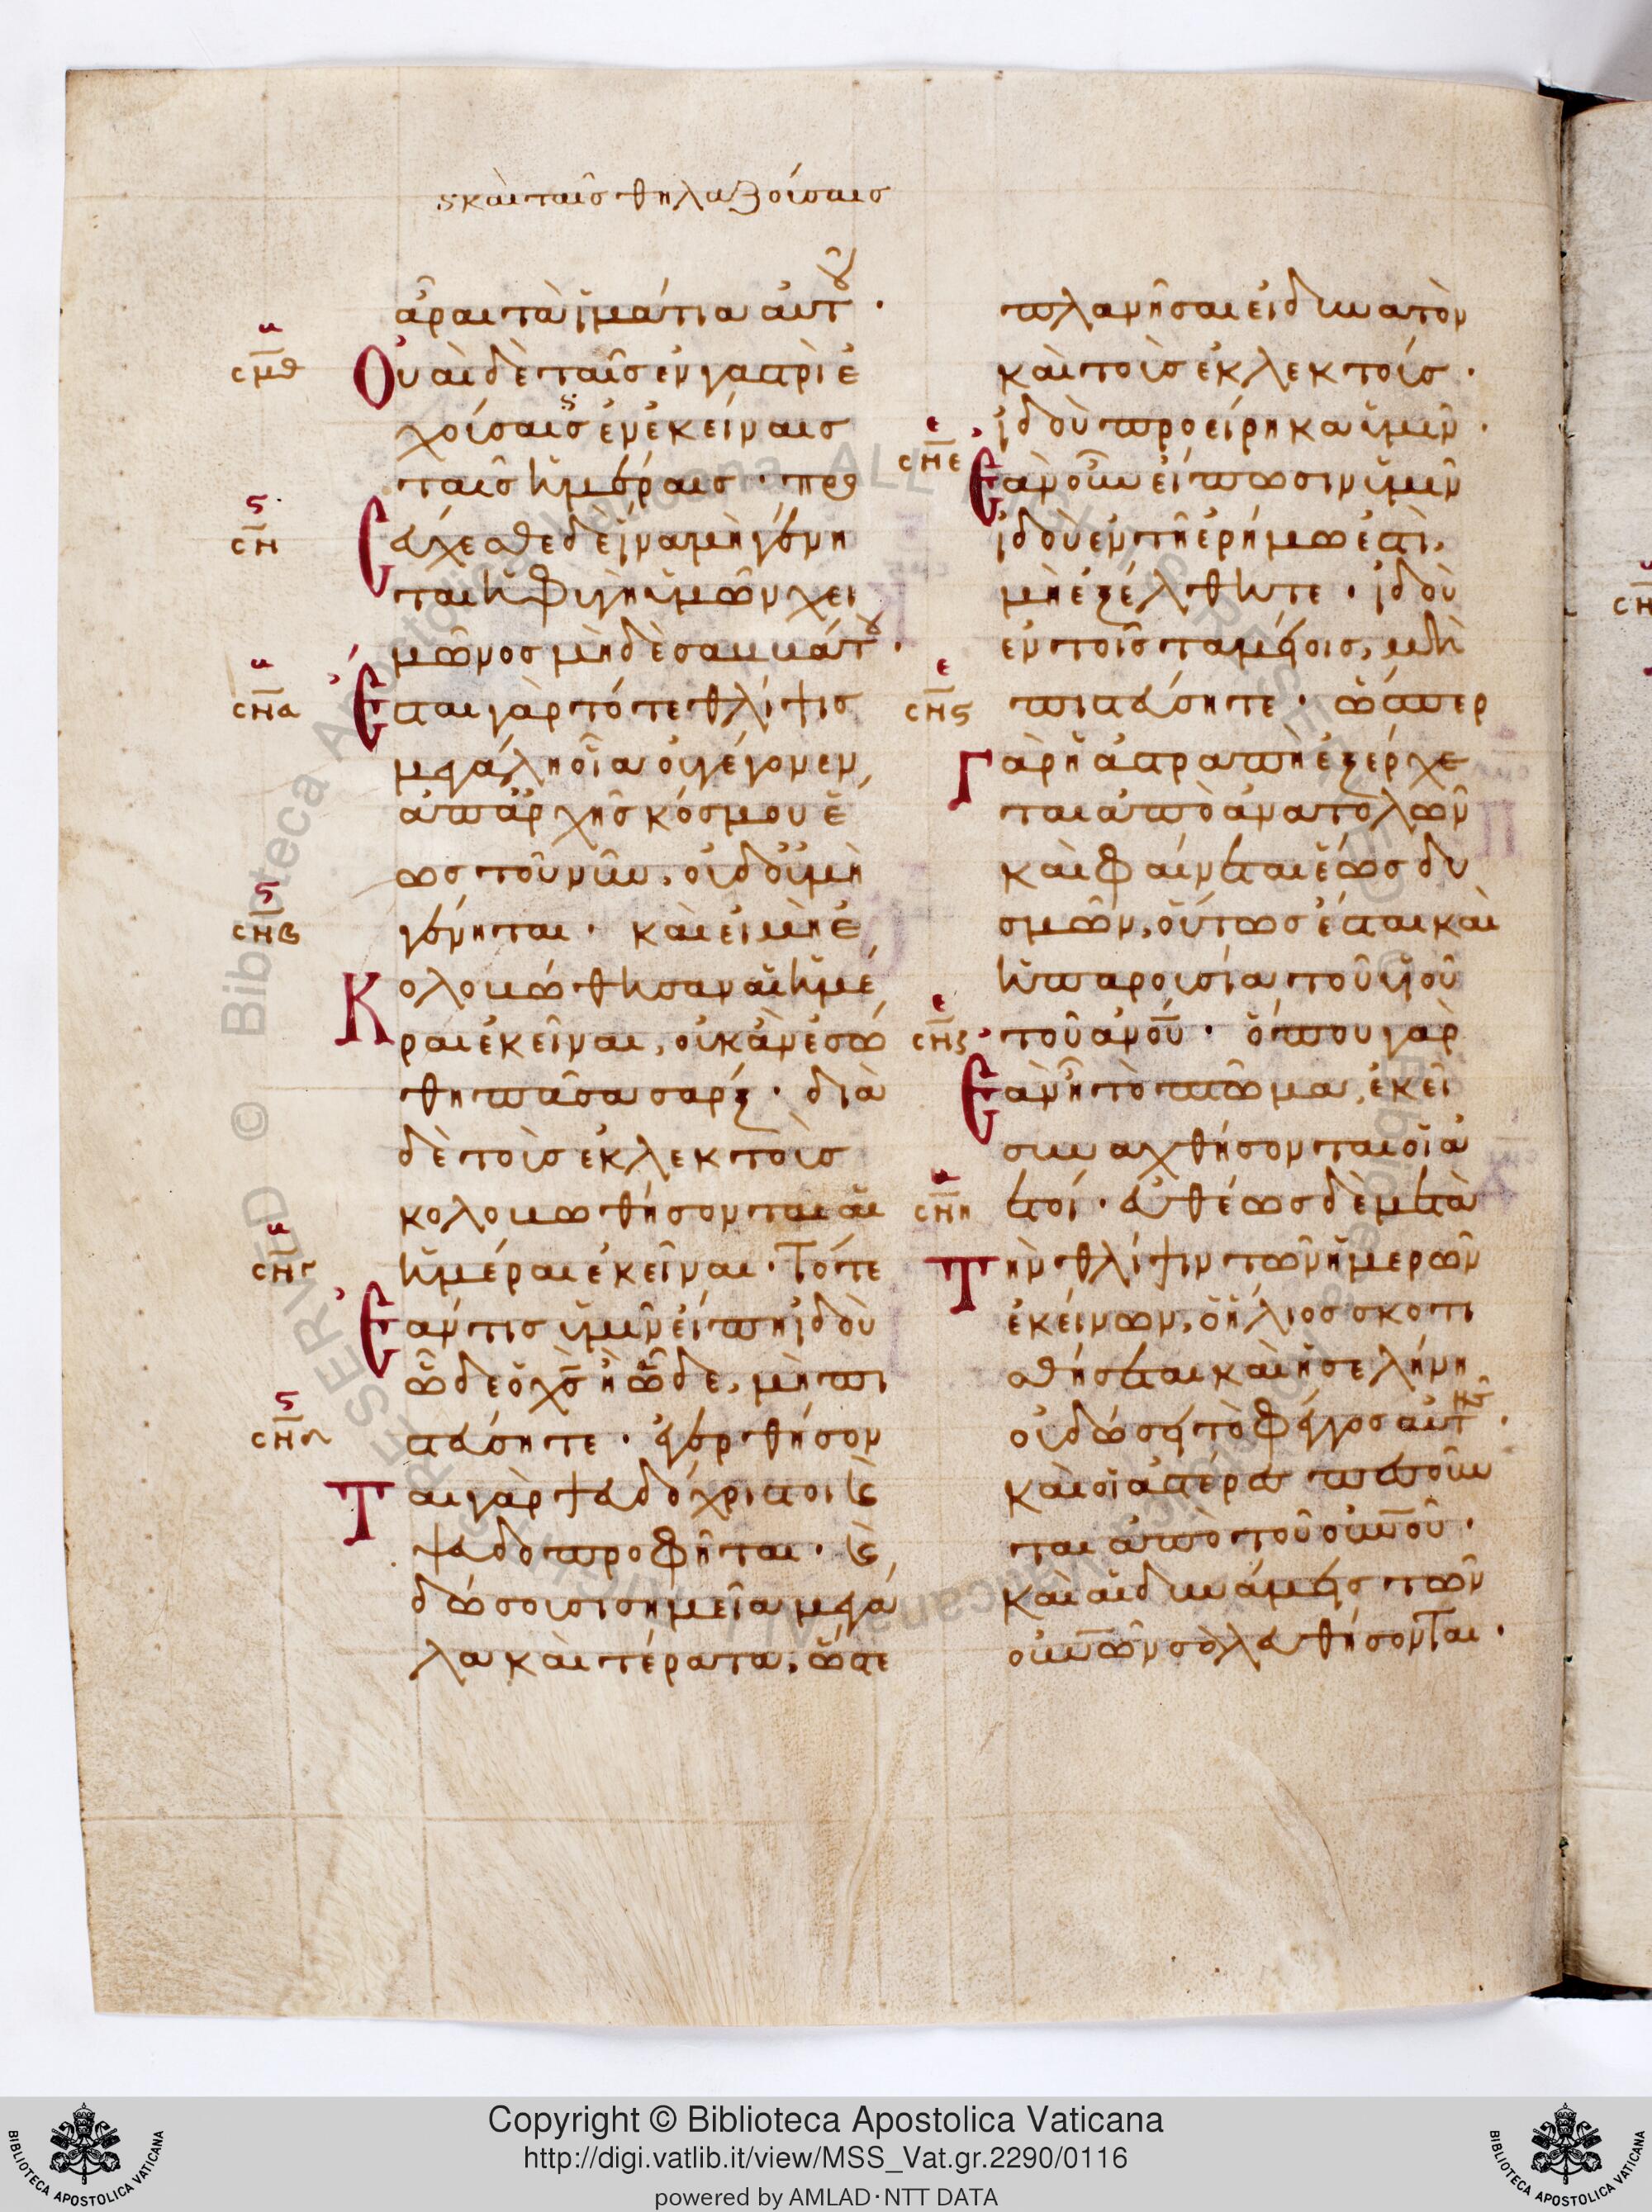 ϛ καὶ ταῖς θηλαζούσαις
ἆραι τὰ ἱμάτια αὐτοῦ ·
σμθ
Οὐαὶ δὲ ταῖς ἐν γαστρὶ ἐ
χούσαις ϛ ἐν ἐκείναις
ταῖς ἡμέραις · προ
ϛ
σν
σεύχεσθε δὲ ἵνα μὴ γένη
ται ἡ φυγὴ ὑμῶν χει
μῶνος μηδὲ σαββάτου ·
σνα
Ἔσται γὰρ τότε θλίψις
μεγάλη οἵα οὐ γέγονεν,
ἀπ' ἀρχῆς κόσμου ἕ
ως τοῦ νῦν, οὐδ' οὐ μὴ
ϛ
σνβ
γένηται · καὶ εἰ μὴ ἐ
Κολοβώθησαν αἱ ἡμέ
ραι ἐκεῖναι, οὐκ ἂν ἐσώ
θη πᾶσα σάρξ · διὰ
δὲ τοὺς ἐκλεκτοὺς
κολοβωθήσονται αἱ
σνγ
ἡμέραι ἐκεῖναι · Τότε
Ἐάν τις ὑμῖν εἴπῃ ἰδοὺ
ὧδε ὁ χς ἢ ὧδε, μὴ πι
ϛ
σνδ
στεύσητε · ἐγερθήσον
Ται γὰρ ψευδόχριστοι καὶ
ψευδοπροφῆται · καὶ
δώσουσι σημεῖα μεγά
λα καὶ τέρατα, ὥστε
πλανῆσαι εἰ δυνατὸν
καὶ τοὺς ἐκλεκτούς ·
ἰδοὺ προείρηκα ὑμῖν ·
ε
σνε
Ἐὰν οὖν εἴπωσιν ὑμῖν
ἰδοὺ ἐν τῇ ἐρήμω ἐστὶ,
μὴ ἐξέλθητε · ἰδοὺ
ἐν τοῖς ταμείοις, μὴ
ε
σνϛ
πιστεύσητε · ὥσπερ
Γὰρ ἡ ἀστραπὴ ἐξέρχε
ται ἀπὸ ἀνατολῶν
καὶ φαίνεται ἕως δυ
σμῶν, οὕτως ἔσται καὶ
ἡ παρουσία τοῦ υἱοῦ
ε
σνζ
τοῦ ἀνου · ὅπου γὰρ
Ἐὰν ἦ τὸ πτῶμα, ἐκεῖ
συναχθήσονται οἱ ἀ
σνη
ετοί · εὐθέως δὲ μετὰ
Τὴν θλίψιν τῶν ἡμερῶν
ἐκείνων, ὁ ἥλιος σκοτι
σθήσεται καὶ ἡ σελήνη
οὐ δώσει τὸ φέγγος αὐτῆς ·
καὶ οἱ ἀστέρες πεσοῦν
ται ἀπὸ τοῦ οὐνου ·
καὶ αἱ δυνάμεις τῶν
οὐνων σαλευθήσονται ·
Copyright © Biblioteca Apostolica Vaticana
http://digi.vatlib.it/view/MSS_Vat.gr.2290/0116
powered by AMLAD·NTT DATA
BIBLIOTECA APOSTOLICA VATICANA
BIBLIOTECA APOSTOLICA VATICANA